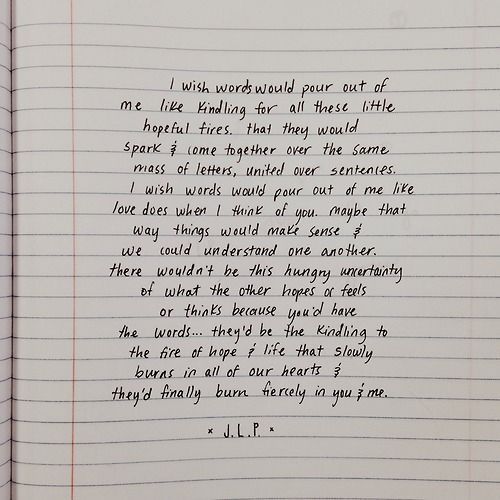 I wish words would pour out of
me like kindling for all these little
hopeful fires. that they would
spark & come together over the same
mass of letters, united over sentences.
I wish words would pour out of me like
love does when I think of you. maybe that
way things would make sense &
we could understand one another.
there wouldn't be this hungry uncertainty
of what the other hopes or feels
or thinks because you'd have
the words... they'd be the kindling to
the fire of hope & life that slowly
burns in all of our hearts &
they'd finally burn fiercely in you & me.
× J.L.P. ×